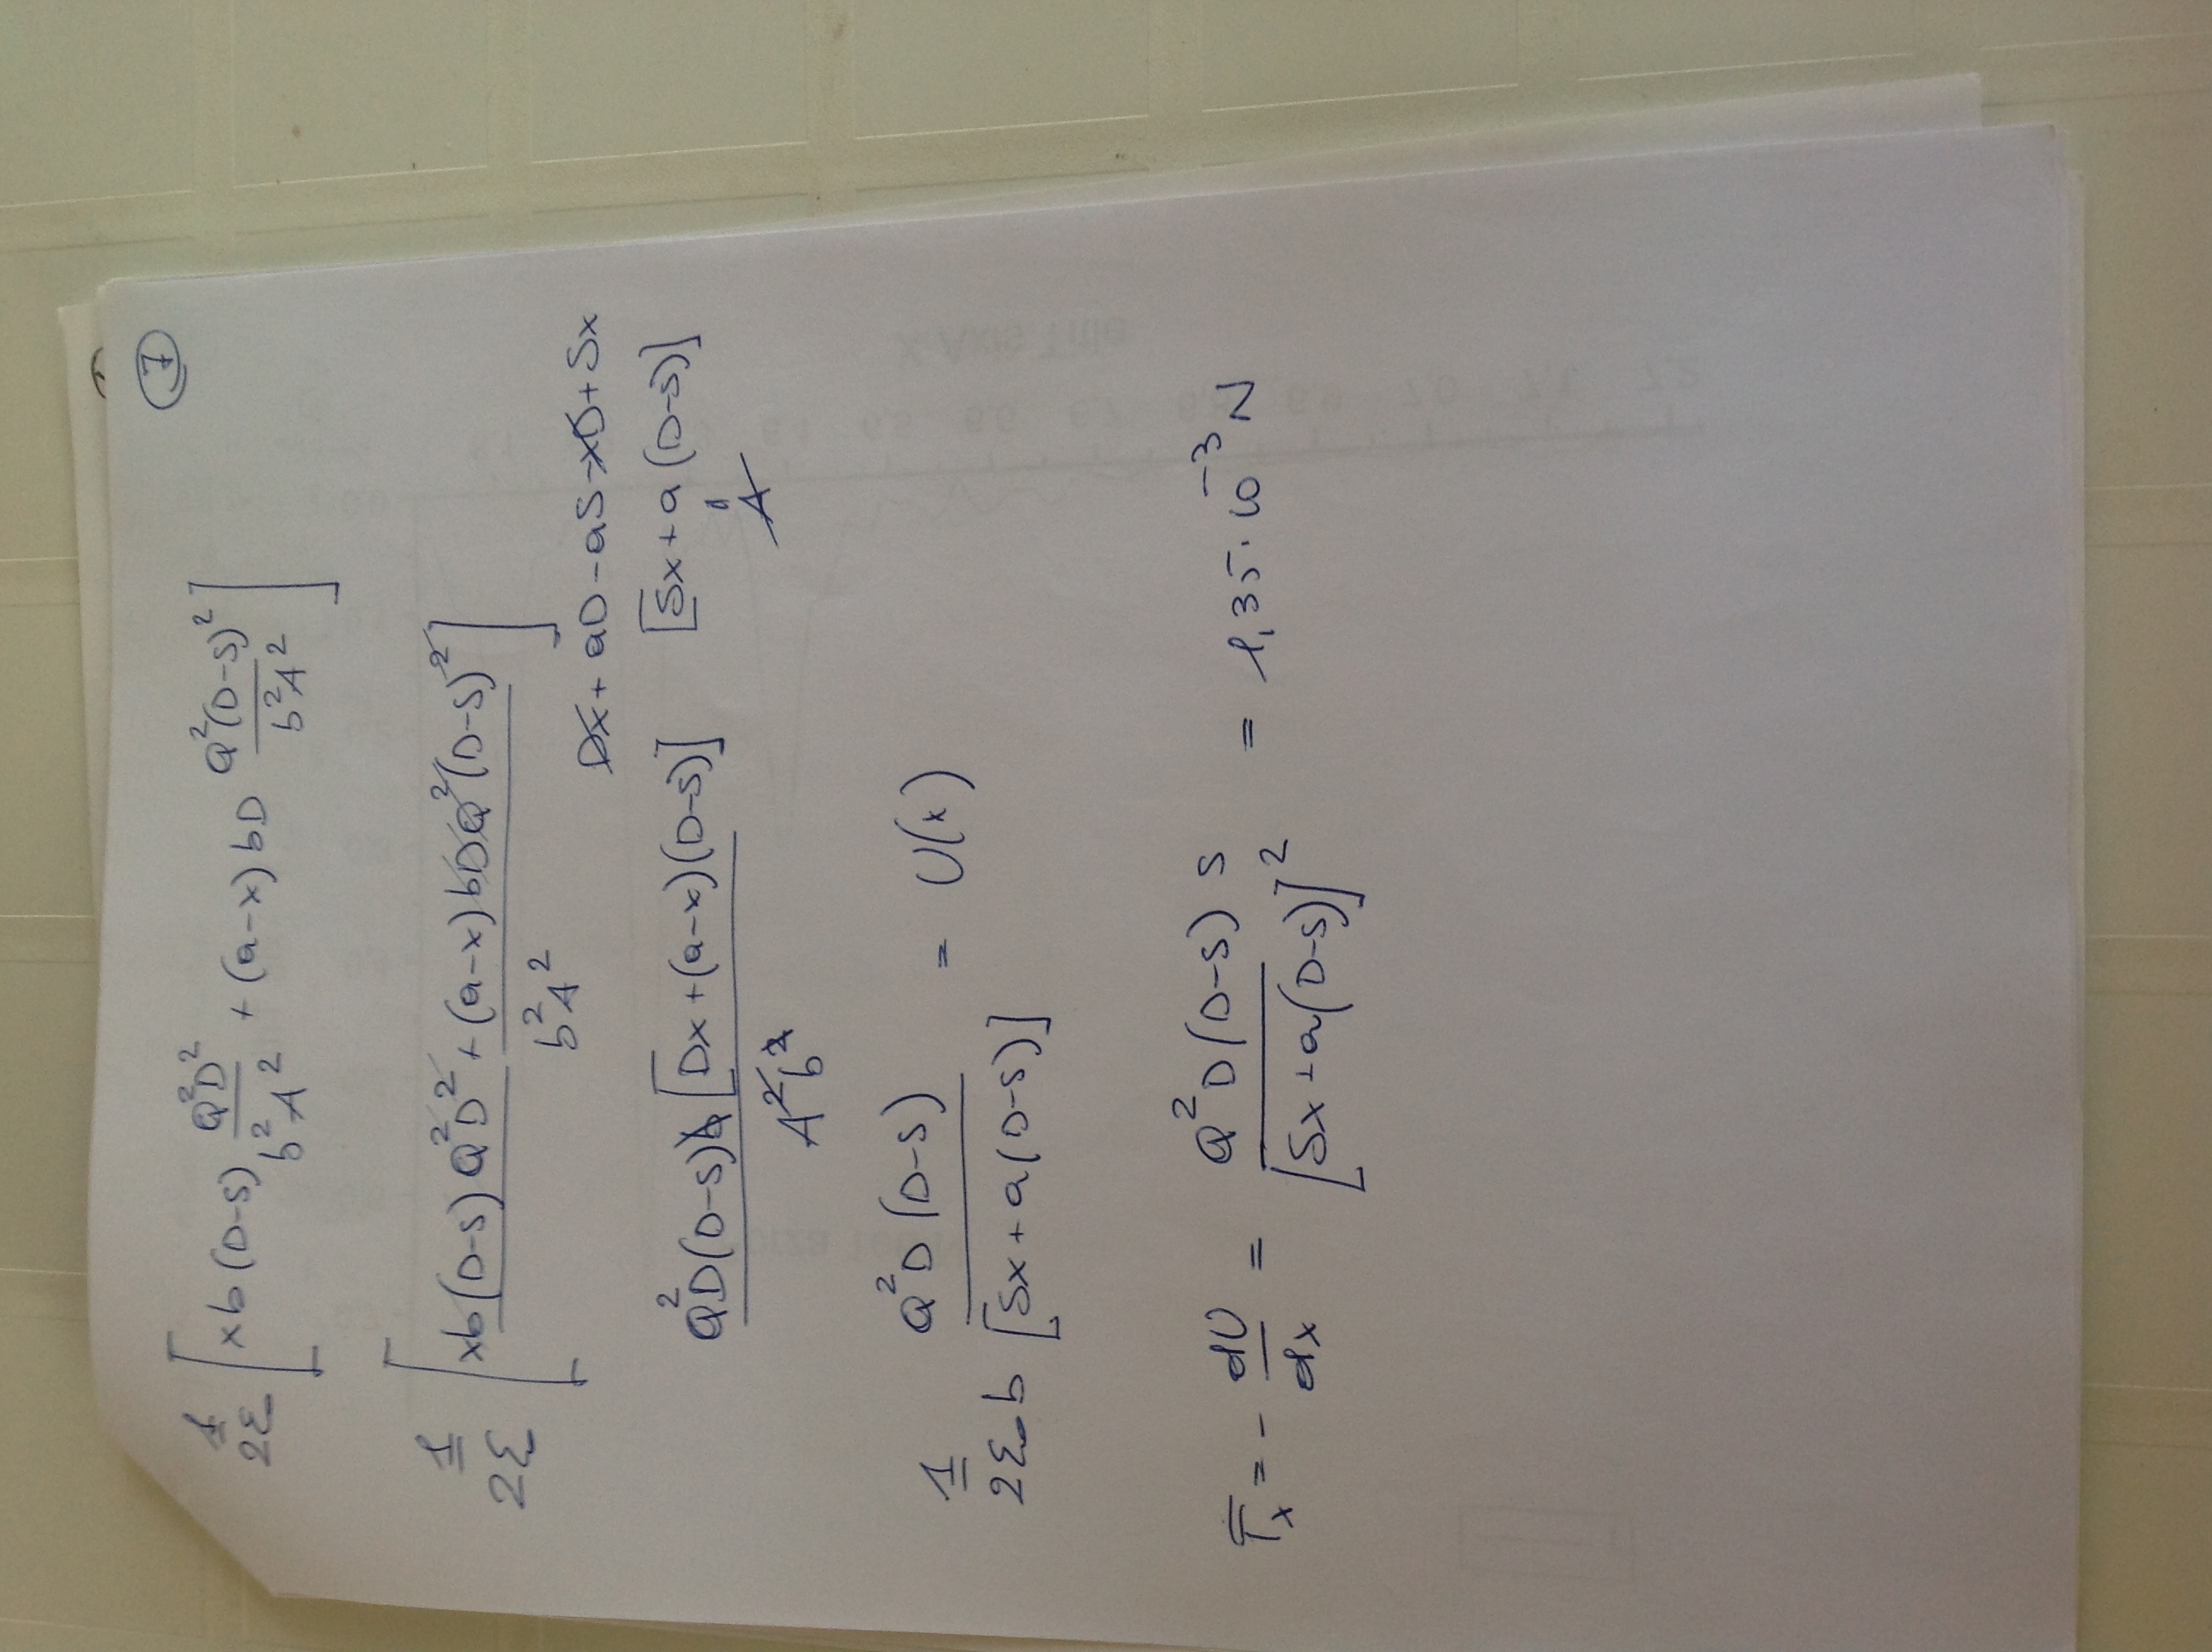 7
1/2ε [ xb(D-S) Q²D²/b²A² + (a-x) bD Q²(D-S)²/b²A² ]
1/2ε [ xb(D-S) Q²D² + (a-x) bDQ²(D-S)² / b²A² ]
Dx + aD - aS - xD + Sx
Q²D(D-S)b [Dx + (a-x)(D-S)] / A²b² [Sx + a(D-S)]
"
A
1/2ε₀b Q²D(D-S)/[Sx + a(D-S)] = U(x)
Fx = - dU/dx = Q²D(D-S) S/[Sx + a(D-S)]² = 1,35·10⁻³ N